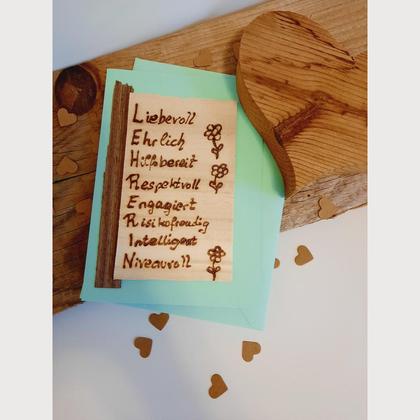 Liebevoll
Ehrlich
Hilfsbereit
Respektvoll
Engagiert
Risikofreudig
Intelligent
Niveauvoll